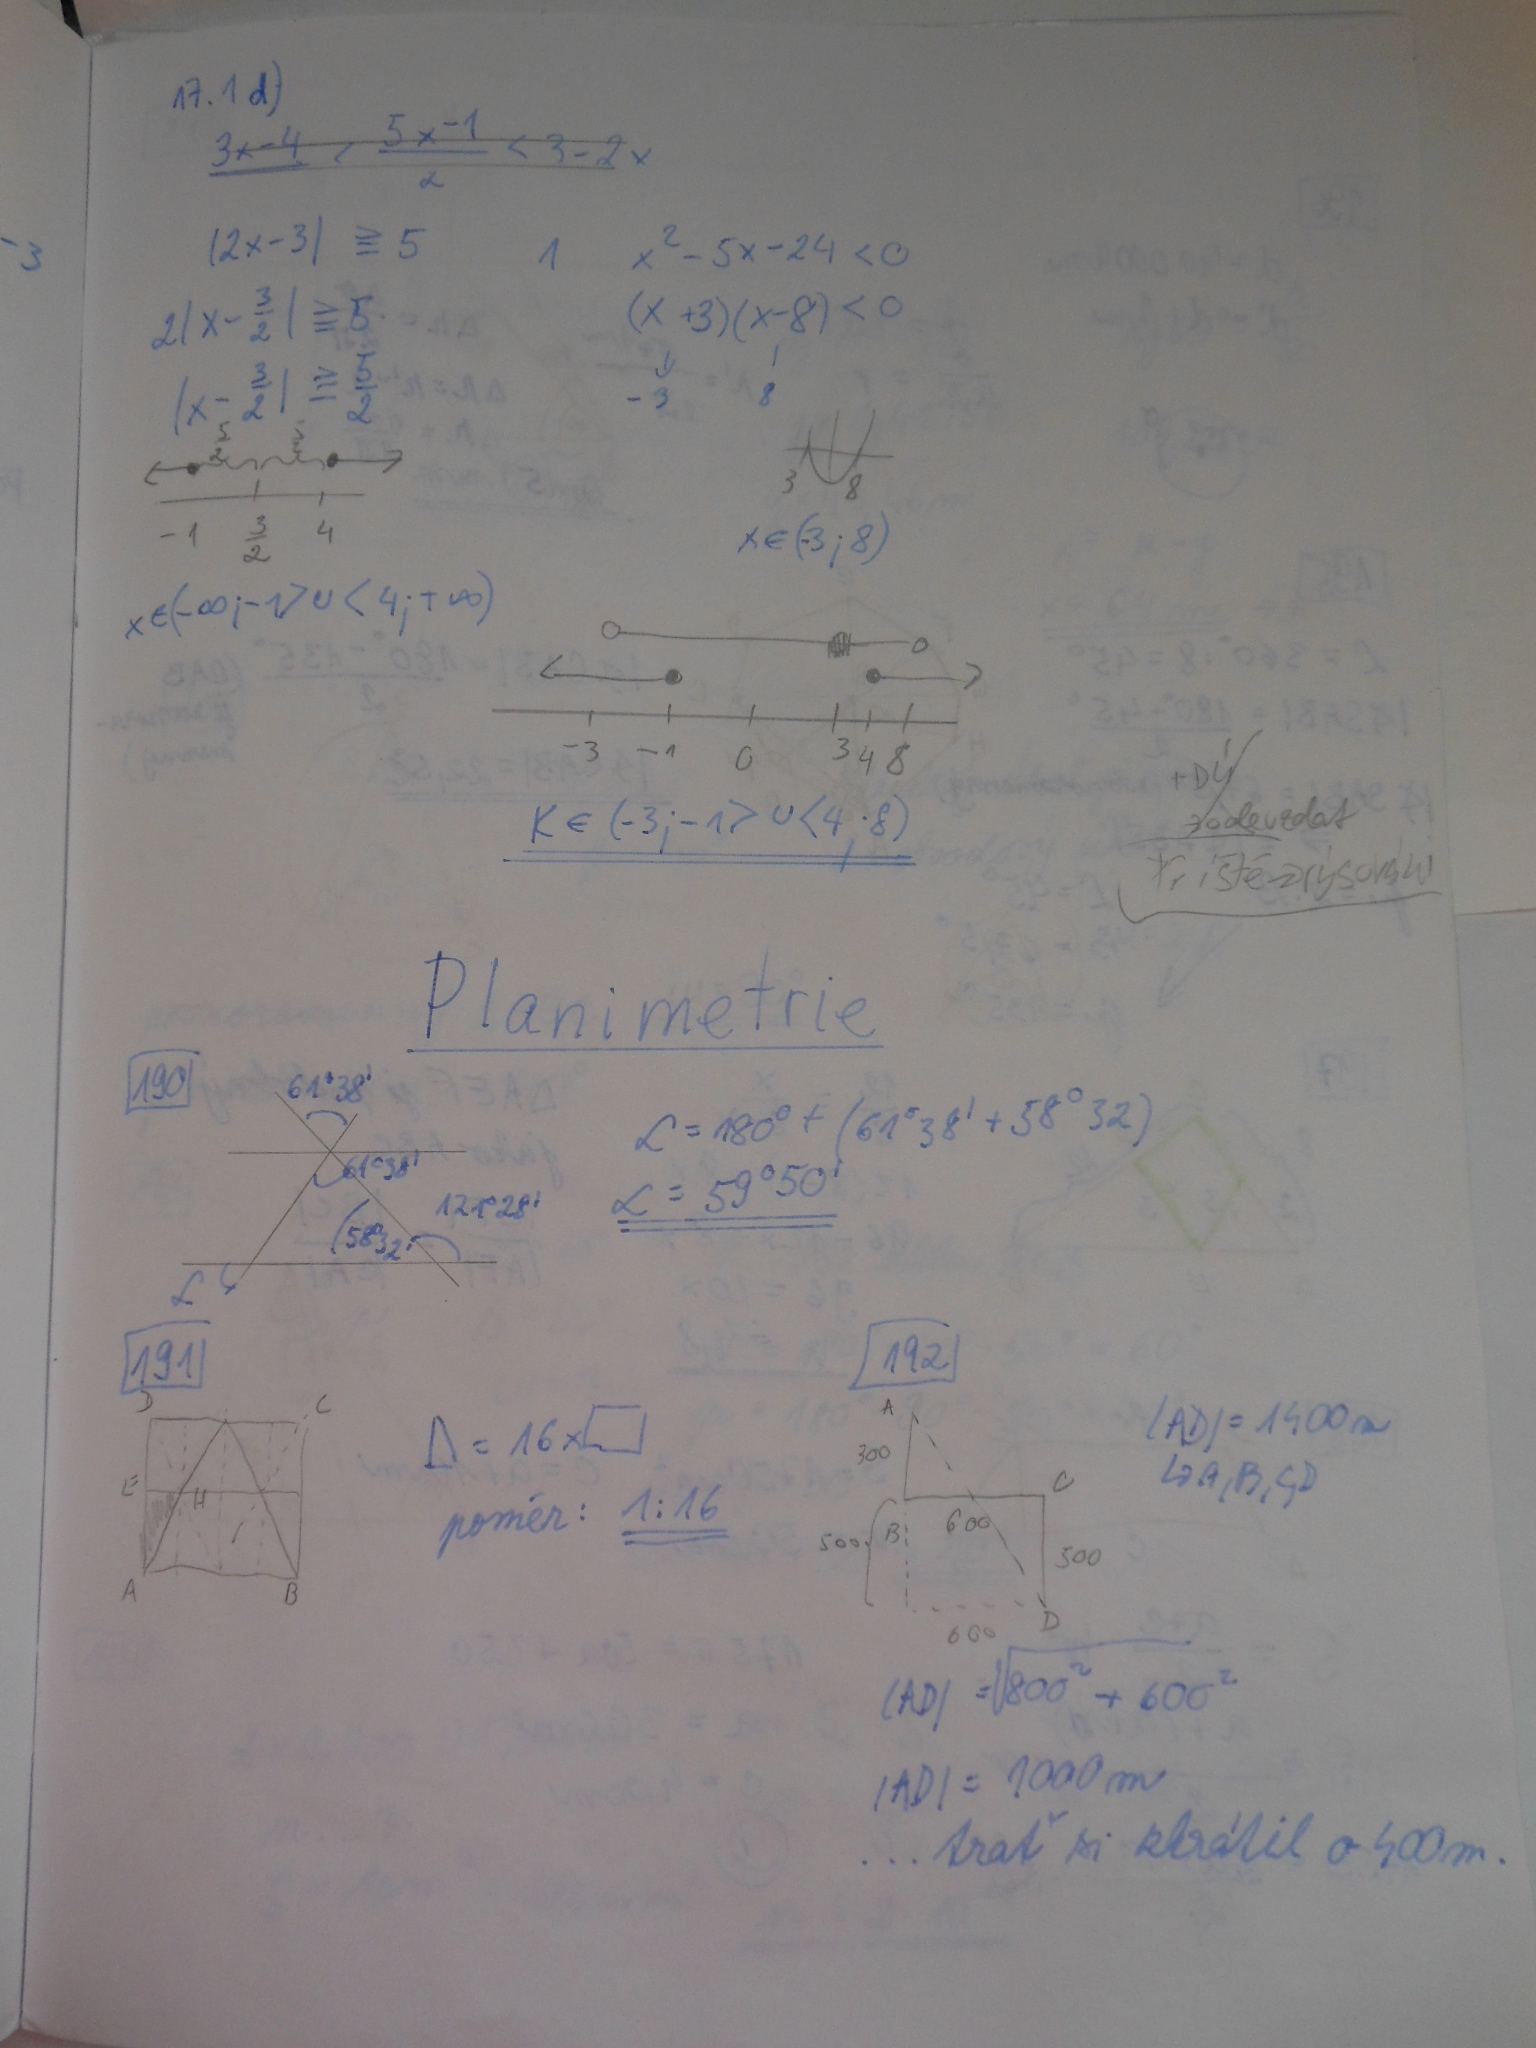 17.1 d)
3x-4 < (5x-1)/2 < 3-2x
|2x-3| ≧ 5
2|x-3/2| ≧ 5
|x-3/2| ≧ 5/2
5/2 5/2
-1 3/2 4
x∈(-∞;-1>∪<4;+∞)
1 x²-5x-24<0
(x+3)(x-8)<0
-3 8
3 8
x∈(-3;8)
-3 -1 0 3 4 8
K∈(-3;-1>∪<4;8)
+DÚ
příště-rýsování
-3
Planimetrie
190
61°38'
61°38'
121°28'
58°32'
α
α = 180° + (61°38' + 58°32)
α = 59°50'
191
D C
E H
A B
Δ = 16x□
poměr: 1:16
192
A
300
C
B 600
500 500
D
600
|AD| = 1400 m
↳A,B,C,D
|AD| = √800² + 600²
|AD| = 1000 m
...trať si zkrátil o 400m.